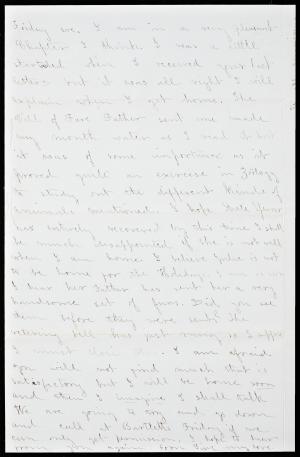 Friday eve. I am in a very pleasant
Chapter I think. I was a little
startled when I received your last
letter but it was all right I will
explain when I get home. The
Bill of Fare Father sent me made
my mouth water as I read it but
it was of some importance as it
proved quite an exercise in Zoology
to study out the different kinds of
animals mentioned. I hope
has entirely recovered by this time I shall
be much disappointed if she is not well
when I am home. I believe Julie is not
to be home for the Holidays.
I hear her Father has sent her a very
handsome set of furs. Did you see
them before they were sent? The
retiring bell has just rung so I suppose
I must close. I am afraid
you will not find much that is
satisfactory but I will be home soon
and then I imagine I shall talk
We are going to try and go down
and call at Bartletts Friday if we
can only get permission. I hope to hear
from you again soon Give my love